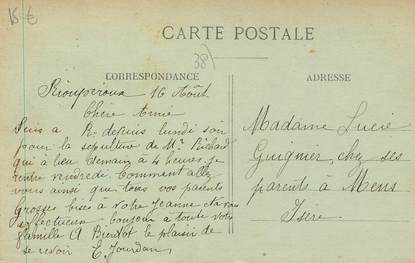 15 €
CARTE POSTALE
38)
CORRESPONDANCE
ADRESSE
Rioupéroux 16 Août
Chère Amie
Suis a R. depuis lundi soir
pour la sepulture de Mr Richard
qui à lieu demain à 4 heures. je
rentre vendredi. Comment allez
vous ainsi que tous vos parents
Grosses bises à votre Jeanne
affectueux bonjour à toute votre
famille A Bientot le plaisir de
se revoir E. Jourdan
Madame Lucie
Guignier, chez ses
parents à Mens
Isère